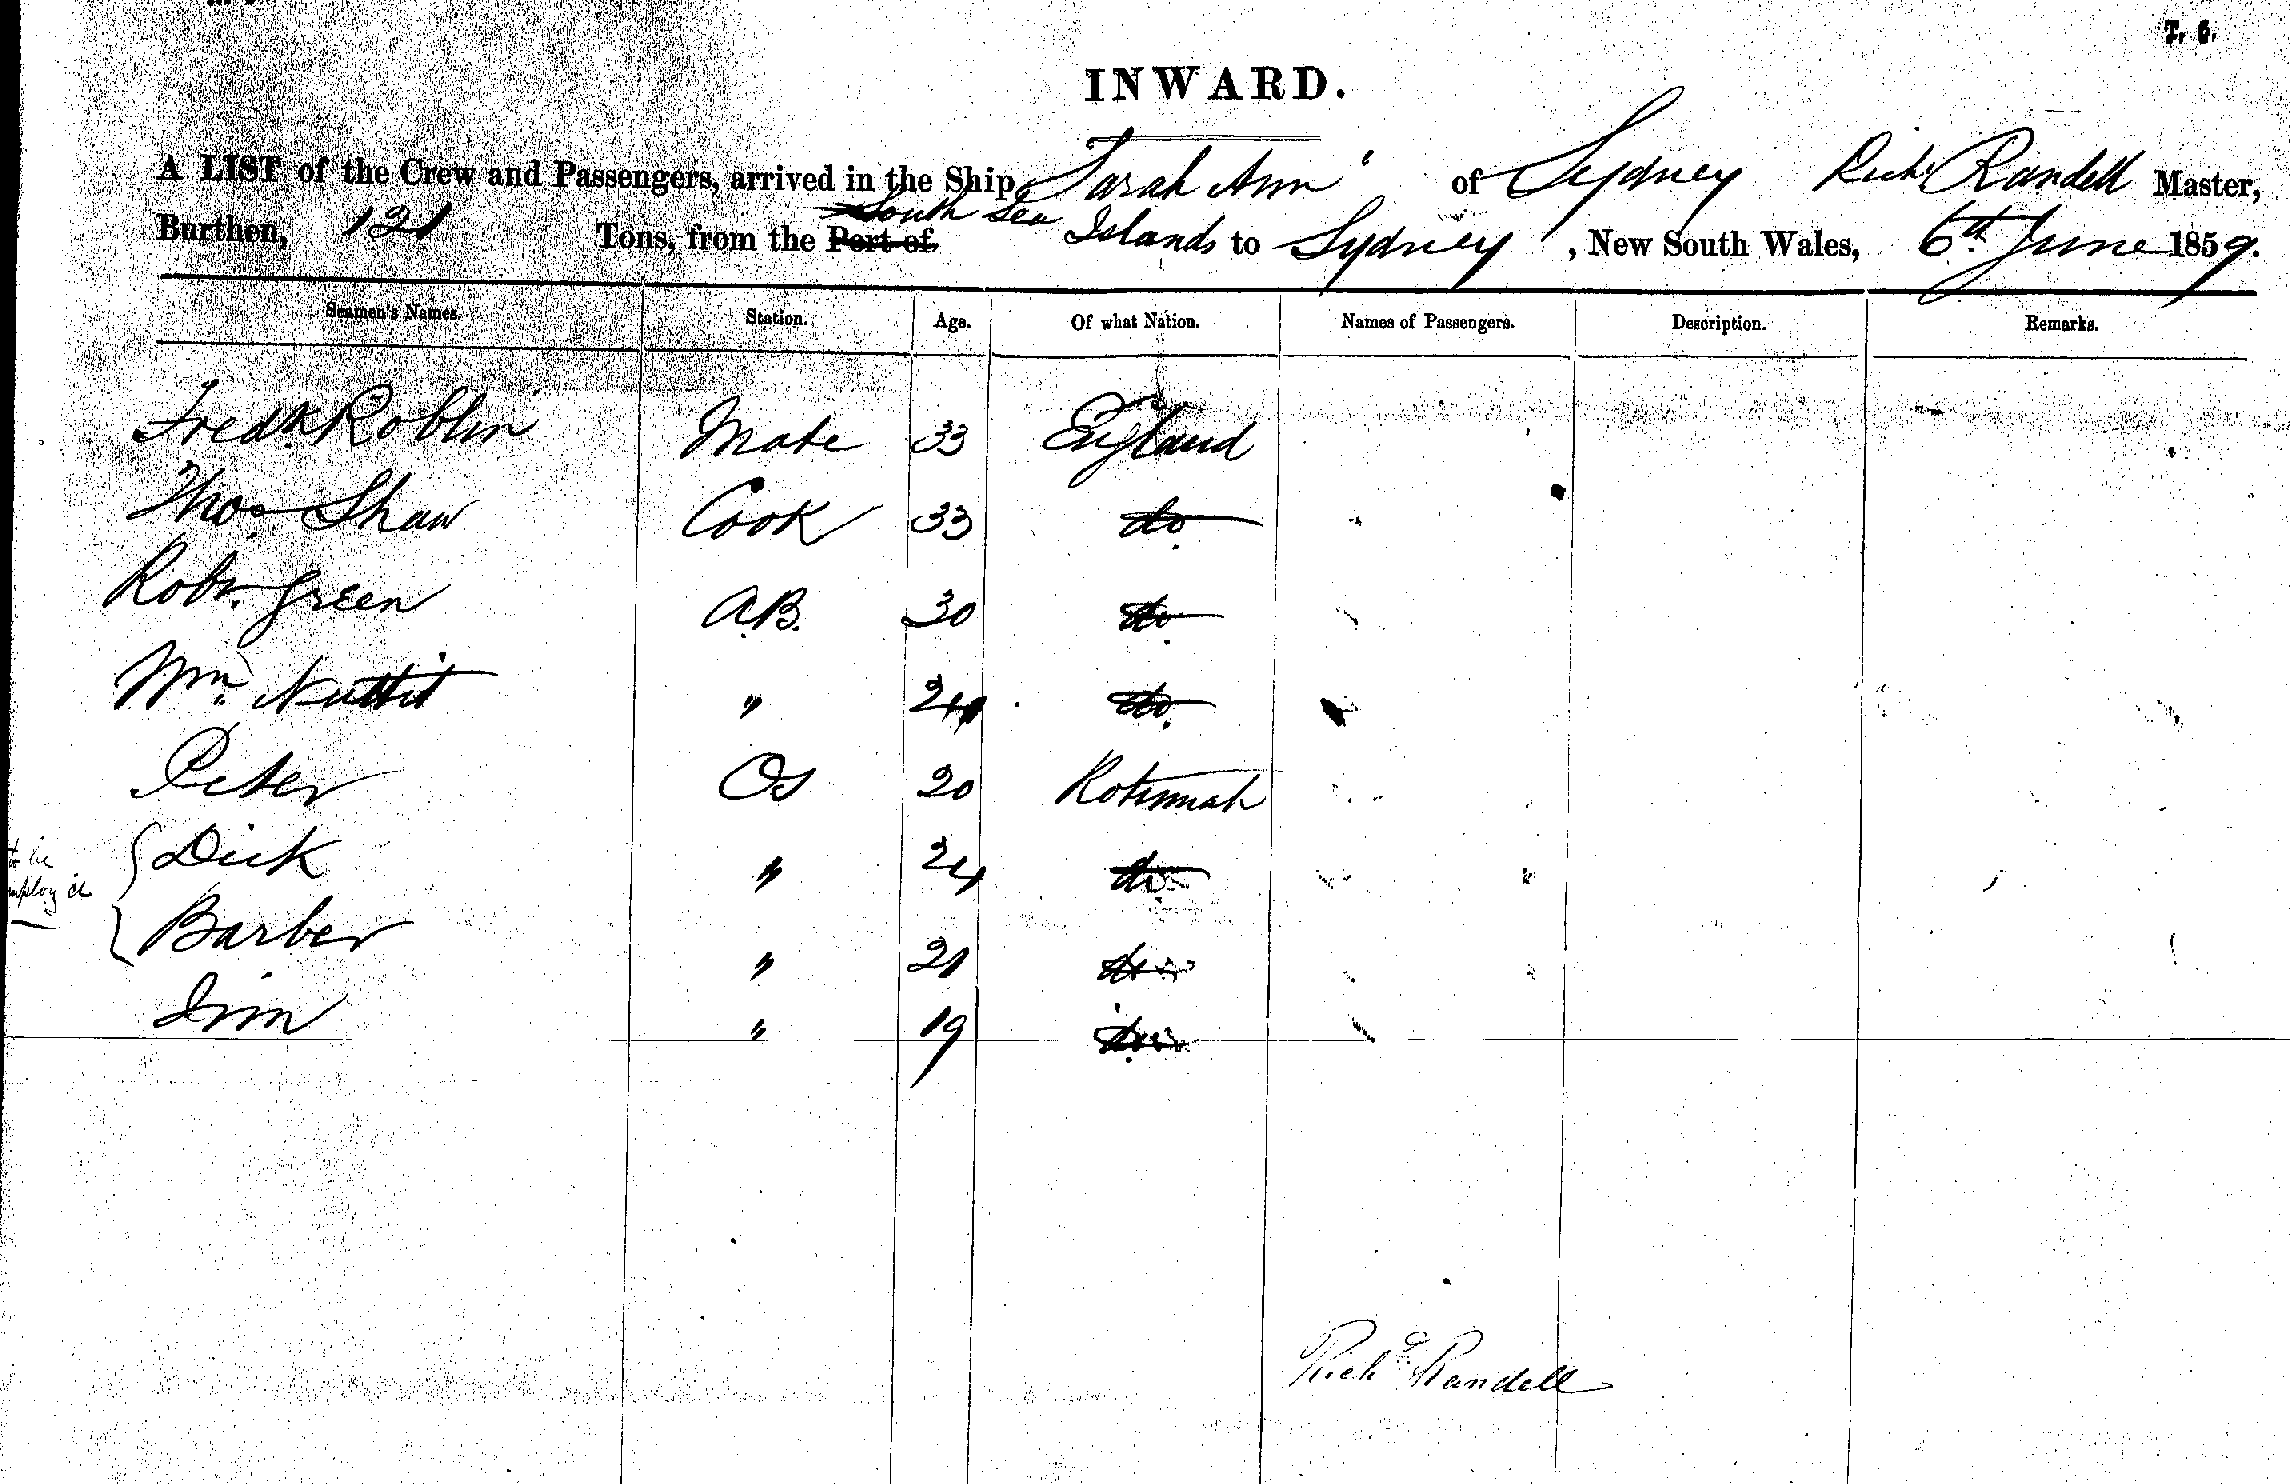 T. 6.
INWARD.
A LIST of the Crew and Passengers, arrived in the Ship Sarah Ann of Sydney Richd Randell Master,
South Sea
Burthen, 121 Tons, from the Port of Islands to Sydney, New South Wales, 6th June 1859.
Seamen's Names. Station. Age. Of what Nation. Names of Passengers. Description. Remarks.
Fredk Roblin Mate 33 England
Thos Shaw Cook 33 do
Robt. Green A.B. 30 do
Wm. Nuttit " 24 do.
Peter OS 20 Rotumah
Dick " 24 do
to be
employ'd
Barber " 21 do
Jim " 19 do
Richd Randell